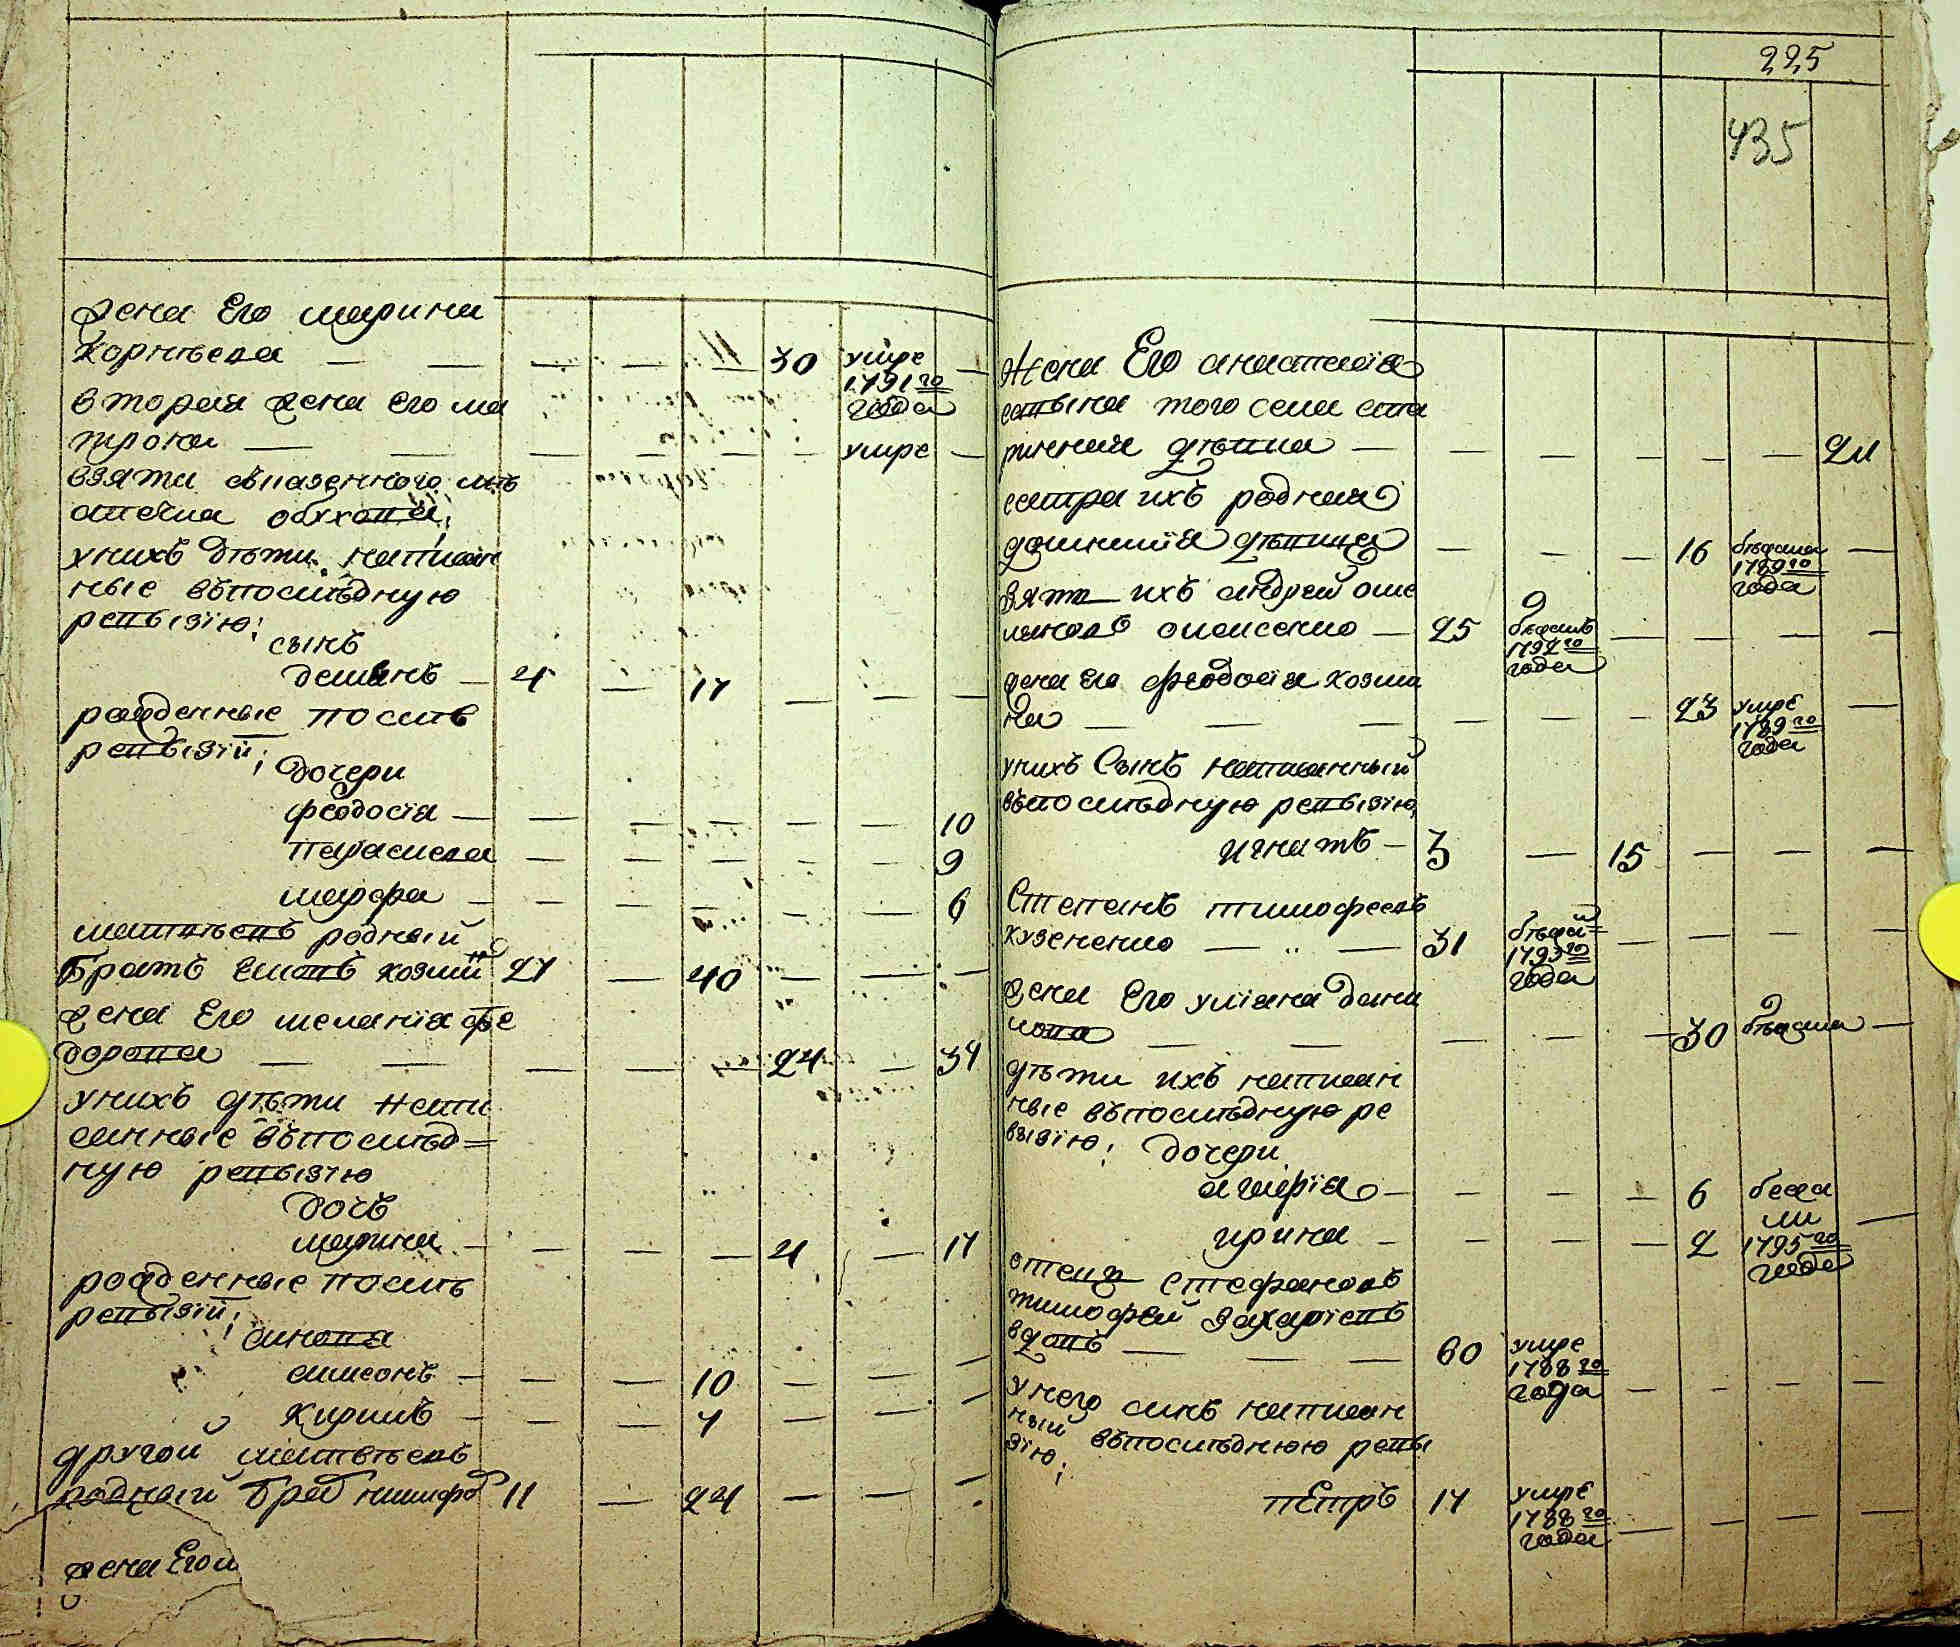 жена Его марина
Корнѣева — — — — — 30 умре —
1791го
года
вторая жена его ма
трона — — — — — — — умре —
взята
обухова,
унихъ дѣти написан
ные въпослѣдную
ревызїю;
сынъ
демянъ — 4 — 17 — — —
рожденные послѣ
ревызїи;
дочери
феодосїя — — — — — — 10
параскева — — — — — — 9
марфа — — — — — — 6
матвѣевъ родный
братъ козми 27 — 40 — — —
жена Его меланїя фе
дорова — — — — — 24 — 34
унихъ дѣти напи
санные въпослѣд=
ную ревызїю
дочь
марина — — — — 4 — 17
рожденные послѣ
ревызїи;
синова
симеонъ — — — 10 — — —
Кирилъ — — — 7 — — —
другой матвѣевъ
родный братъ никифоръ 11 — 24 — — —
жена Его
225
435
Жена Его анастасїя
того села ста
ринная — — — — — — — 24
сестра ихъ родная
дѣвица — — — 16 бѣжала —
1789го
года
зять ихъ андрей оме
ляновъ — 25 бѣжалъ — — — —
1792го
года
жена Его феодосїя козми
на — — — — — — 23 умре —
1789го
года
унихъ Сынъ написанный
въпослѣдную ревызїю,
игнатъ — 3 — 15 — — —
Степанъ тимофеевъ
кузененко — — 31 бѣжал — — — —
1793го
года
жена Его улїана дани
лова — — — — — 30 бѣжала —
дѣти ихъ написан
ные въпослѣдную ре
вызїю; дочери
— — — — 6 бежа
ли
ирина — — — — 2 1795го —
года
отецъ Стефановъ
тимофей захарїевъ
вдовъ — — — 60 умре — — — —
1788го
года
унего синъ написан
ный въпослѣднюю ревы
зїю;
пЕтръ 17 умре — — — —
1788го
года